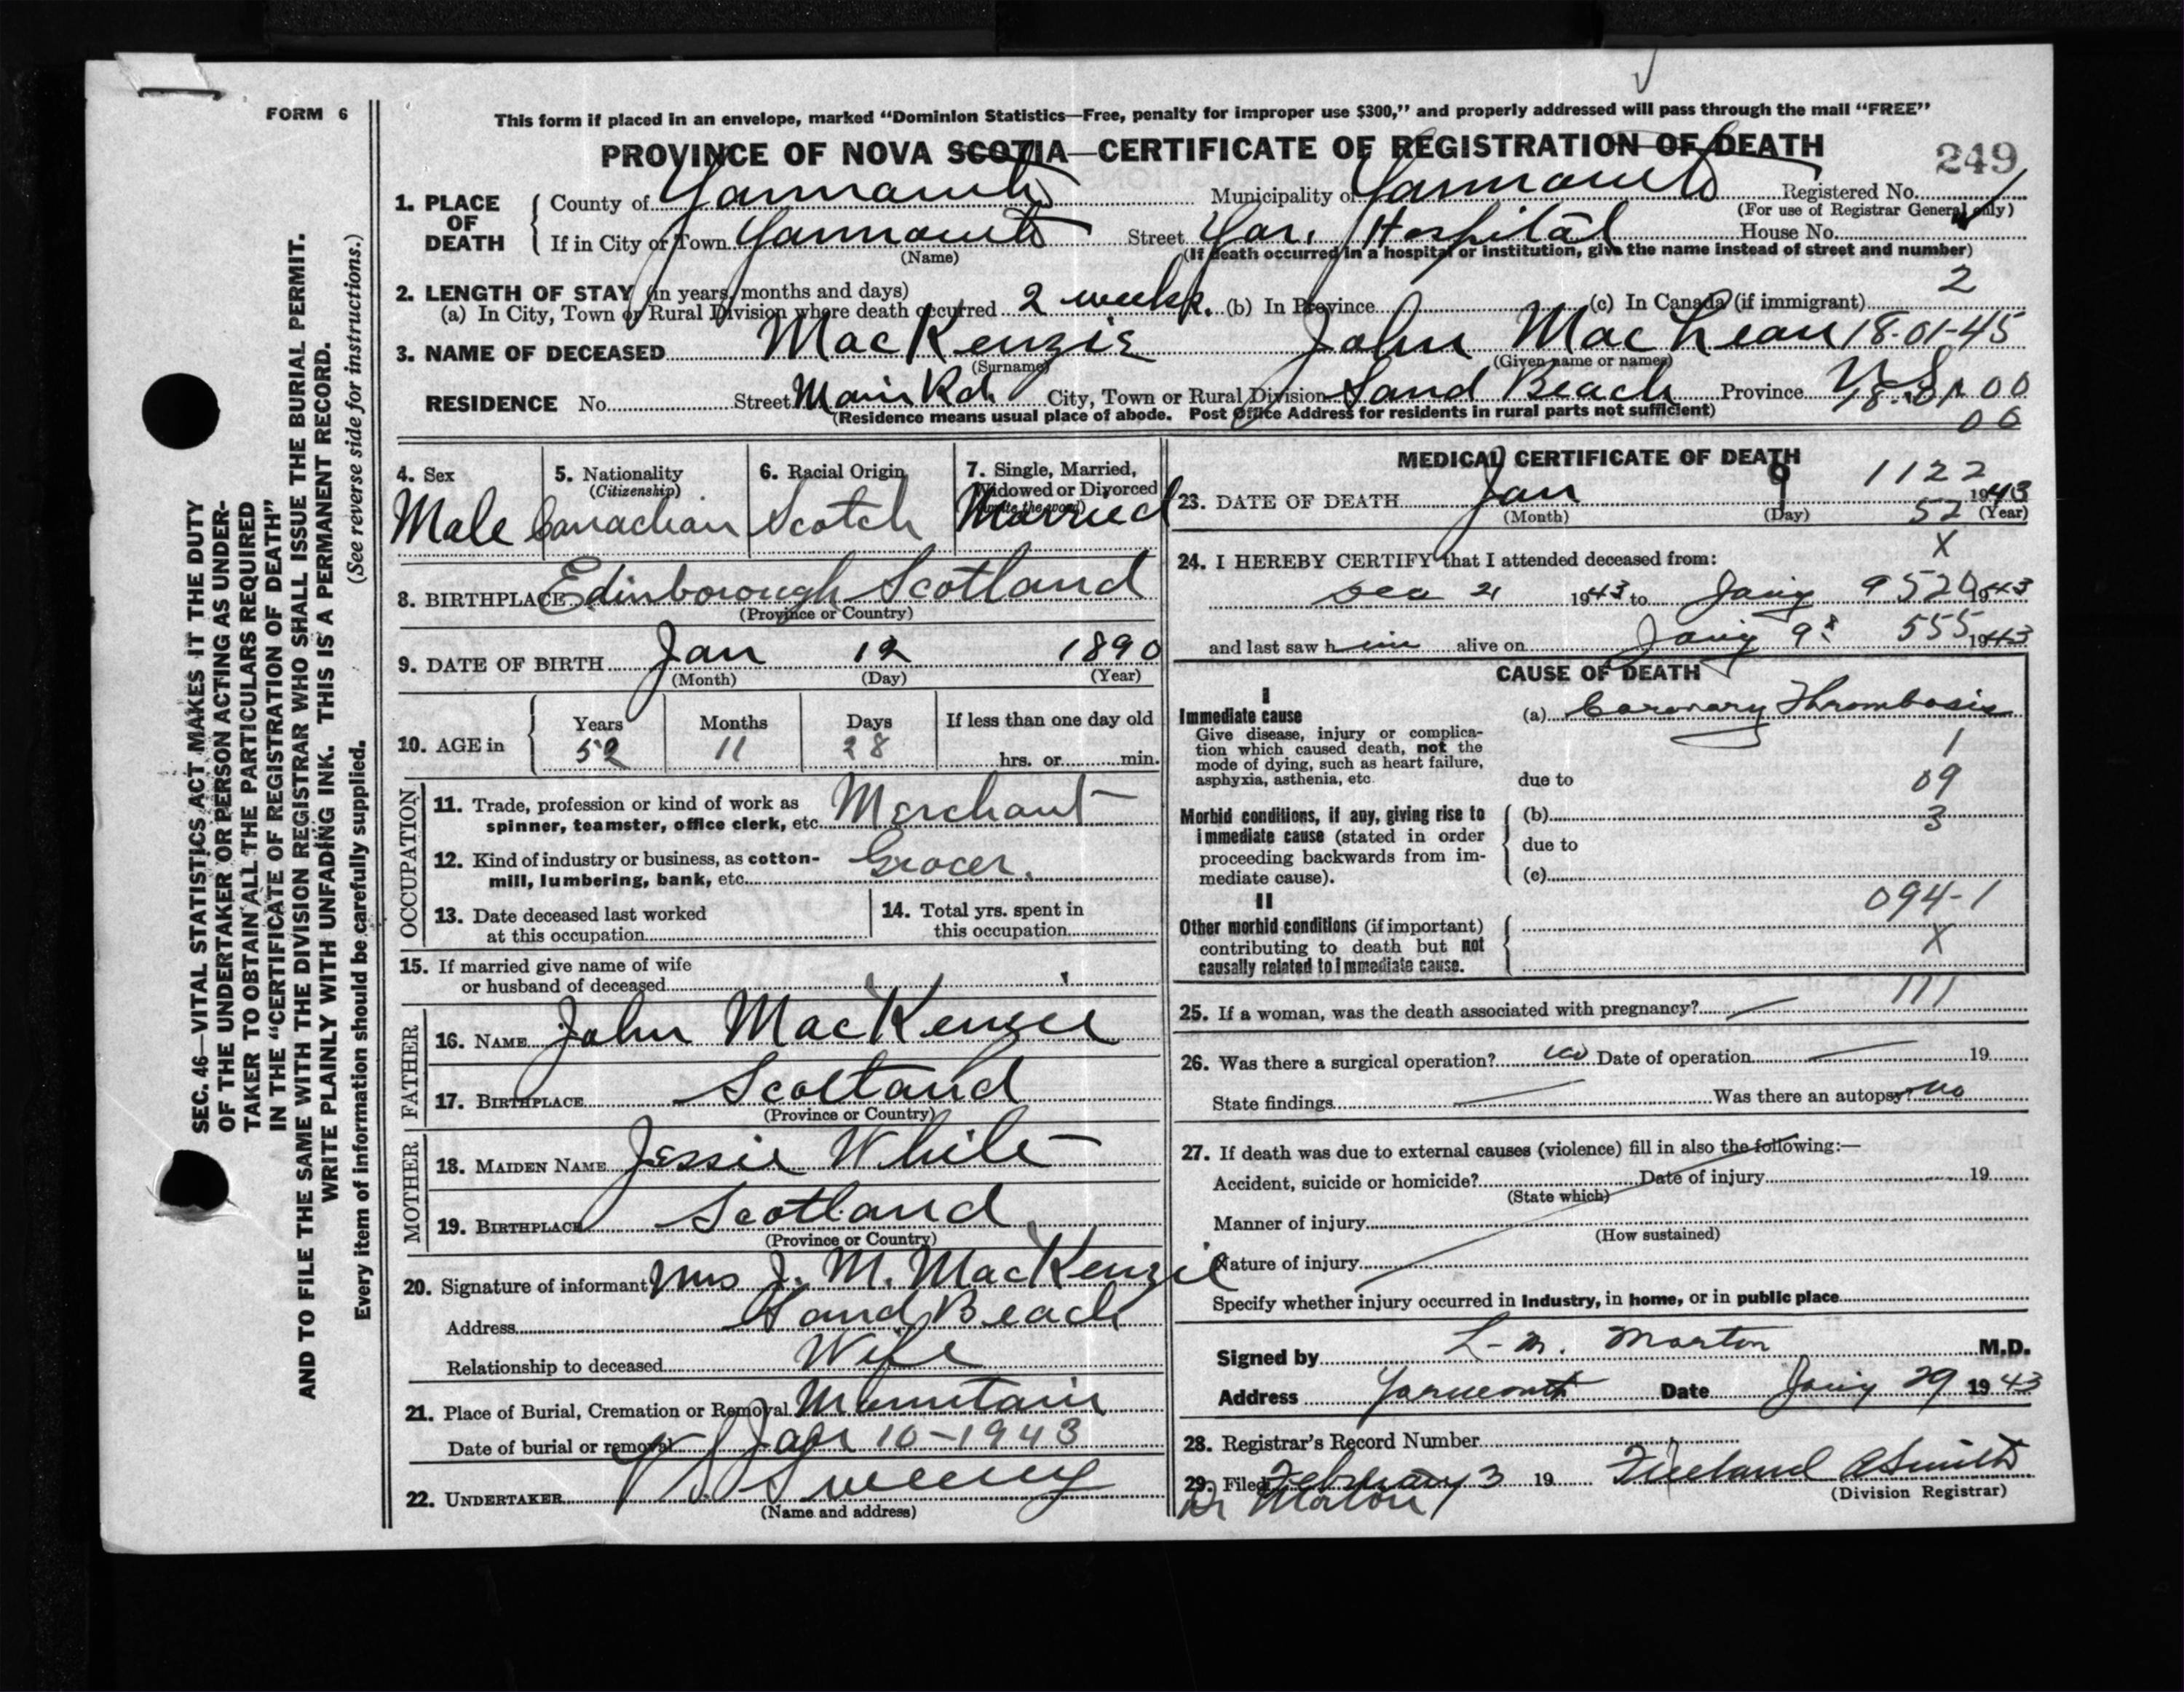 FORM 6
This form if placed in an envelope, marked “Dominion Statistics—Free, penalty for improper use $300,” and properly addressed will pass through the mail “FREE”
PROVINCE OF NOVA SCOTIA—CERTIFICATE OF REGISTRATION OF DEATH
249
1. PLACE OF DEATH
County of Yarmouth Municipality of Yarmouth Registered No.
(For use of Registrar General only)
If in City or Town Yarmouth Street Yar. Hospital House No.
(Name) (If death occurred in a hospital or institution, give the name instead of street and number)
2. LENGTH OF STAY (in years, months and days) 2
(a) In City, Town or Rural Division where death occurred 2 weeks. (b) In Province (c) In Canada (if immigrant)
3. NAME OF DECEASED MacKenzie John MacLean 18-01-45
(Surname) (Given name or names)
RESIDENCE No. Street Main Rd. City, Town or Rural Division Sand Beach Province N.S. 18-01 00
(Residence means usual place of abode. Post Office Address for residents in rural parts not sufficient) 00
4. Sex 5. Nationality (Citizenship) 6. Racial Origin 7. Single, Married, Widowed or Divorced (write the word)
Male Canadian Scotch Married
8. BIRTHPLACE Edinborough Scotland
(Province or Country)
9. DATE OF BIRTH Jan 12 1890
(Month) (Day) (Year)
10. AGE in Years Months Days If less than one day old
52 11 28 hrs. or min.
OCCUPATION
11. Trade, profession or kind of work as Merchant
spinner, teamster, office clerk, etc.
12. Kind of industry or business, as cotton- Grocer.
mill, lumbering, bank, etc.
13. Date deceased last worked at this occupation
14. Total yrs. spent in this occupation
15. If married give name of wife
or husband of deceased
FATHER
16. NAME John MacKenzie
17. BIRTHPLACE Scotland
(Province or Country)
MOTHER
18. MAIDEN NAME Jessie White
19. BIRTHPLACE Scotland
(Province or Country)
20. Signature of informant Mrs J. M. MacKenzie
Address Sand Beach
Relationship to deceased Wife
21. Place of Burial, Cremation or Removal Mountain
Date of burial or removal Jan 10-1943
22. UNDERTAKER V S Sweeny
(Name and address)
MEDICAL CERTIFICATE OF DEATH
1122
23. DATE OF DEATH Jan 9 1943
(Month) (Day) 52 (Year)
24. I HEREBY CERTIFY that I attended deceased from: X
Dec 21 1943 to Jany 9 520 1943
and last saw him alive on Jany 9 555 1943
CAUSE OF DEATH
I
Immediate cause (a) Coronary Thrombosis
Give disease, injury or complica-
tion which caused death, not the 1
mode of dying, such as heart failure,
asphyxia, asthenia, etc. due to 09
Morbid conditions, if any, giving rise to (b) 3
immediate cause (stated in order due to
proceeding backwards from im-
mediate cause). (c)
II 094-1
Other morbid conditions (if important)
contributing to death but not X
causally related to immediate cause.
111
25. If a woman, was the death associated with pregnancy? —
26. Was there a surgical operation? no Date of operation — 19
State findings — Was there an autopsy? no
27. If death was due to external causes (violence) fill in also the following:—
Accident, suicide or homicide? Date of injury 19
(State which)
Manner of injury
(How sustained)
Nature of injury
Specify whether injury occurred in Industry, in home, or in public place
Signed by L-M. Morton M.D.
Address Yarmouth Date Jany 29 1943
28. Registrar’s Record Number
29. Filed February 3 19 Freeland A Smith
Dr Morton (Division Registrar)
SEC. 46—VITAL STATISTICS ACT MAKES IT THE DUTY
OF THE UNDERTAKER OR PERSON ACTING AS UNDER-
TAKER TO OBTAIN ALL THE PARTICULARS REQUIRED
IN THE “CERTIFICATE OF REGISTRATION OF DEATH”
AND TO FILE THE SAME WITH THE DIVISION REGISTRAR WHO SHALL ISSUE THE BURIAL PERMIT.
WRITE PLAINLY WITH UNFADING INK. THIS IS A PERMANENT RECORD.
Every item of information should be carefully supplied. (See reverse side for instructions.)